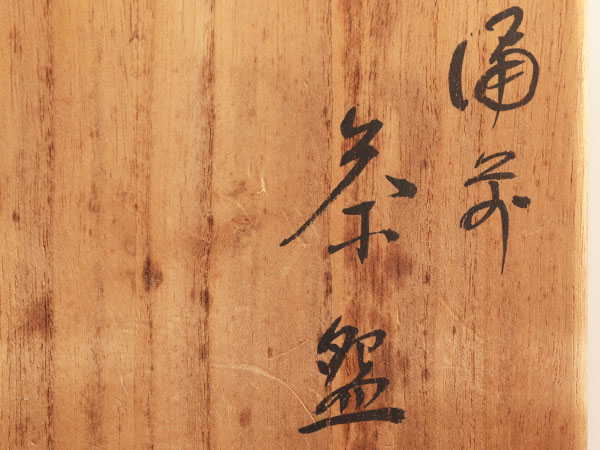 備前
茶盌